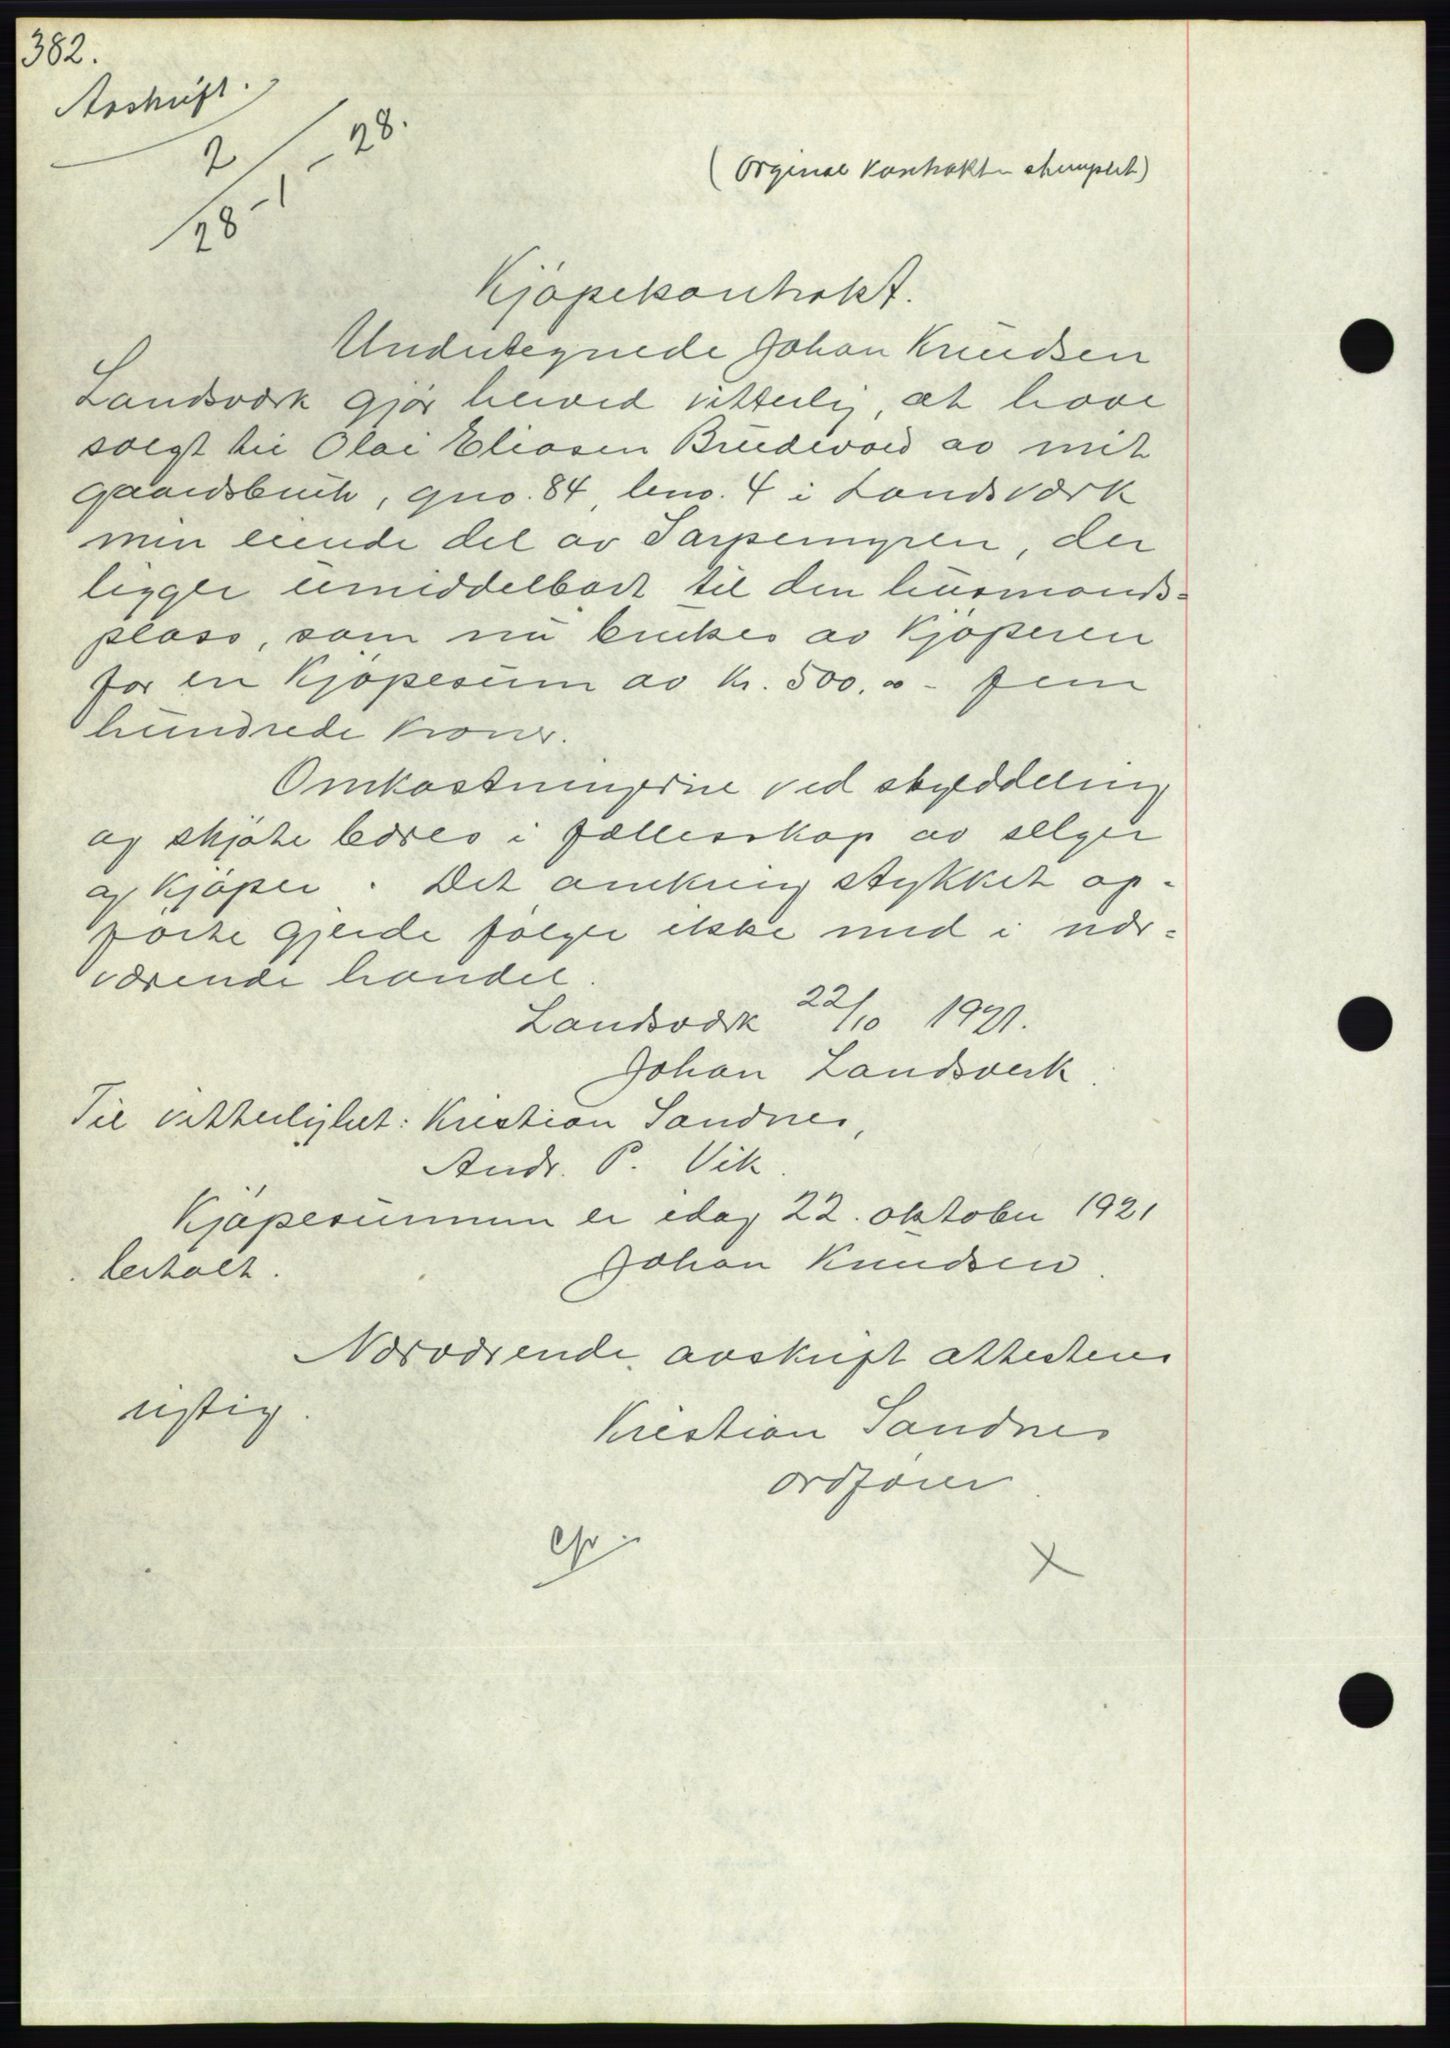 382.
Avskrift.
2/28-1-28.
(Orginal kontrakten stemplet)
Kjöpekontrakt.
Undertegnede Johan Knudsen
Landsværk gjör herved vitterlig, at have
solgt til Olai Eliasen Brudevold av mit
gaardsbruk, gno. 84, bno. 4 i Landsværk
min eiende del av Sarpemyren, der
ligger umiddelbart til den husmands-
plass, som nu brukes av Kjöperen
for en Kjöpesum av kr. 500.00 - fem
hundrede kroner.
Omkostningerne ved skylddeling
og skjöte bæres i fællesskap av selger
og Kjöper. Det omkring stykket op-
förte gjerde fölger ikke med i nær-
værende handel.
Landsværk 22/10 1921.
Johan Landsverk.
Til vitterlighet: Kristian Sandnes,
Andr. P. Vik.
Kjöpesummen er idag 22. oktober 1921
betalt. Johan Knudsen.
Nærværende avskrift attesteres
rigtig.
Kristian Sandnes
ordförer.